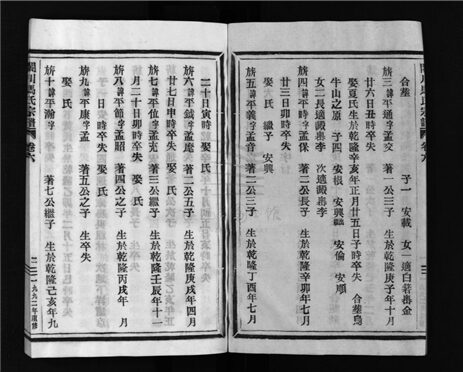 合塟 子一 安載 女一適白若壽金
旂三 平通字孟交 著一公三子 生於乾隆庚子年十月
廿六日丑時卒失
娶夏氏生於乾隆辛亥年正月廿五日子時卒失 合塟烏
牛山之原 子四 安根 安興繼 安倫 安順
女二長適嚴恭李 次適嚴恭李
旂四 平時字孟保 著二公長子 生於乾隆辛卯年七月
廿三日卯時卒失
娶 氏 繼子 安興
旂五 平義字孟音 著二公三子 生於乾隆丁酉年七月
二十日寅時 娶 氏
旂六 平鉞字孟庵 著二公五子 生於乾隆庚戌年四月
廿七日申時卒失 娶 氏
旂七 平位字孟充 著三公繼子 生於乾隆壬辰年十一
月二十日卯時卒失 娶 氏
旂八 平節字孟四公之子 生於乾隆丙戌年 月
日 時卒失 娶 氏
旂九 平康字孟 著五公之子 生卒失
娶 氏
旂十 平瀚字孟 著七公繼子 生於乾隆己亥年九
馬氏宗譜 卷六
一九九二年重修